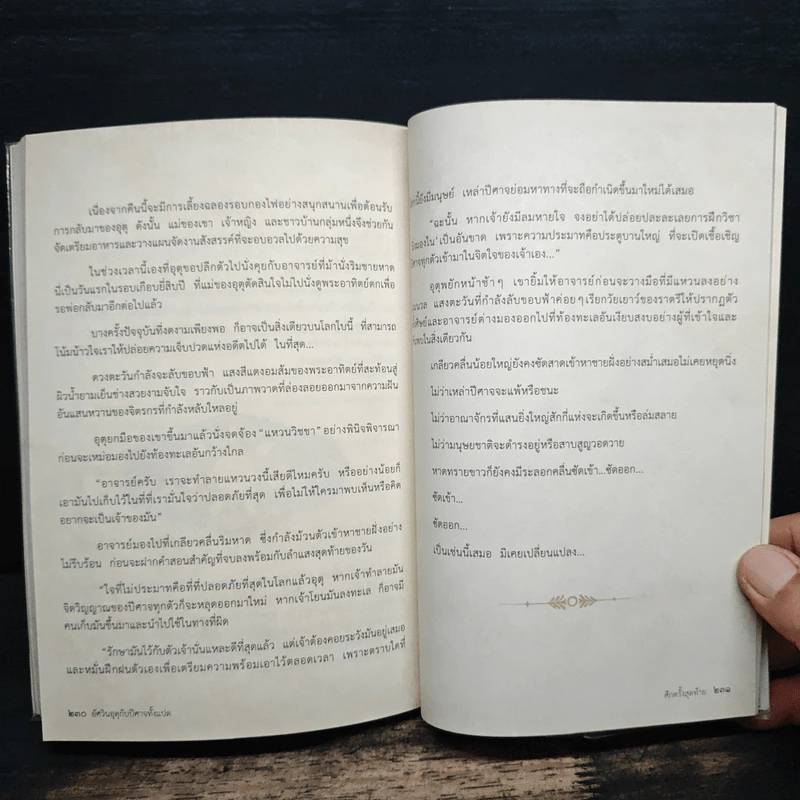 เนื่องจากคืนนี้จะมีการเลี้ยงฉลองรอบกองไฟอย่างสนุกสนานเพื่อต้อนรับ
การกลับมาของอุตุ ดังนั้น แม่ของเขา เจ้าหญิง และชาวบ้านกลุ่มหนึ่งจึงช่วยกัน
จัดเตรียมอาหารและวางแผนจัดงานสังสรรค์ที่จะอบอวลไปด้วยความสุข
ในช่วงเวลานี้เองที่อุตุขอปลีกตัวไปนั่งคุยกับอาจารย์ที่ม้านั่งริมชายหาด
นี่เป็นวันแรกในรอบเกือบยี่สิบปี ที่แม่ของอุตุตัดสินใจไม่ไปนั่งดูพระอาทิตย์ตกเพื่อ
รอพ่อกลับมาอีกต่อไปแล้ว
บางครั้งปัจจุบันที่งดงามเพียงพอ ก็อาจเป็นสิ่งเดียวบนโลกใบนี้ ที่สามารถ
โน้มน้าวใจเราให้ปล่อยความเจ็บปวดแห่งอดีตไปได้ ในที่สุด...
ดวงตะวันกำลังจะลับขอบฟ้า แสงสีแดงอมส้มของพระอาทิตย์ที่สะท้อนสู่
ผิวน้ำยามเย็นช่างสวยงามจับใจ ราวกับเป็นภาพวาดที่ล่องลอยออกมาจากความฝัน
อันแสนหวานของจิตรกรที่กำลังหลับใหลอยู่
อุตุยกมือของเขาขึ้นมาแล้วนั่งจดจ้อง “แหวนวิชชา” อย่างพินิจพิจารณา
ก่อนจะเหม่อมองไปยังท้องทะเลอันกว้างไกล
“อาจารย์ครับ เราจะทำลายแหวนวงนี้เสียดีไหมครับ หรืออย่างน้อยก็
เอามันไปเก็บไว้ในที่ที่เรามั่นใจว่าปลอดภัยที่สุด เพื่อไม่ให้ใครมาพบเห็นหรือคิด
อยากจะเป็นเจ้าของมัน”
อาจารย์มองไปที่เกลียวคลื่นริมหาด ซึ่งกำลังม้วนตัวเข้าหาชายฝั่งอย่าง
ไม่รีบร้อน ก่อนจะฝากคำสอนสำคัญที่จบลงพร้อมกับลำแสงสุดท้ายของวัน
“ใจที่ไม่ประมาทคือที่ที่ปลอดภัยที่สุดในโลกแล้วอุตุ หากเจ้าทำลายมัน
จิตวิญญาณของปีศาจทุกตัวก็จะหลุดออกมาใหม่ หากเจ้าโยนมันลงทะเล ก็อาจมี
คนเก็บมันขึ้นมาและนำไปใช้ในทางที่ผิด
“รักษามันไว้กับตัวเจ้านั่นแหละดีที่สุดแล้ว แต่เจ้าต้องคอยระวังมันอยู่เสมอ
และหมั่นฝึกฝนตัวเองเพื่อเตรียมความพร้อมเอาไว้ตลอดเวลา เพราะตราบใดที่
๒๓๐ อัศวินอุตุกับปีศาจทั้งแปด
ยังมีมนุษย์ เหล่าปีศาจย่อมหาทางที่จะถือกำเนิดขึ้นมาใหม่ได้เสมอ
“ฉะนั้น หากเจ้ายังมีลมหายใจ จงอย่าได้ปล่อยปละละเลยการฝึกวิชา
เป็นอันขาด เพราะความประมาทคือประตูบานใหญ่ ที่จะเปิดเชื้อเชิญ
ปีศาจทุกตัวเข้ามาในจิตใจของเจ้าเอง...”
อุตุพยักหน้าช้าๆ เขายิ้มให้อาจารย์ก่อนจะวางมือที่มีแหวนลงอย่าง
แสงตะวันที่กำลังลับขอบฟ้าค่อยๆเรียกวัยเยาว์ของราตรีให้ปรากฏตัว
และอาจารย์ต่างมองออกไปที่ท้องทะเลอันเงียบสงบอย่างผู้ที่เข้าใจและ
ในสิ่งเดียวกัน
เกลียวคลื่นน้อยใหญ่ยังคงซัดสาดเข้าหาชายฝั่งอย่างสม่ำเสมอไม่เคยหยุดนิ่ง
ไม่ว่าเหล่าปีศาจจะแพ้หรือชนะ
ไม่ว่าอาณาจักรที่แสนยิ่งใหญ่สักกี่แห่งจะเกิดขึ้นหรือล่มสลาย
ไม่ว่ามนุษยชาติจะดำรงอยู่หรือสาบสูญวอดวาย
หาดทรายขาวก็ยังคงมีระลอกคลื่นซัดเข้า...ซัดออก...
ซัดเข้า...
ซัดออก...
เป็นเช่นนี้เสมอ มิเคยเปลี่ยนแปลง...
ศึกครั้งสุดท้าย ๒๓๑